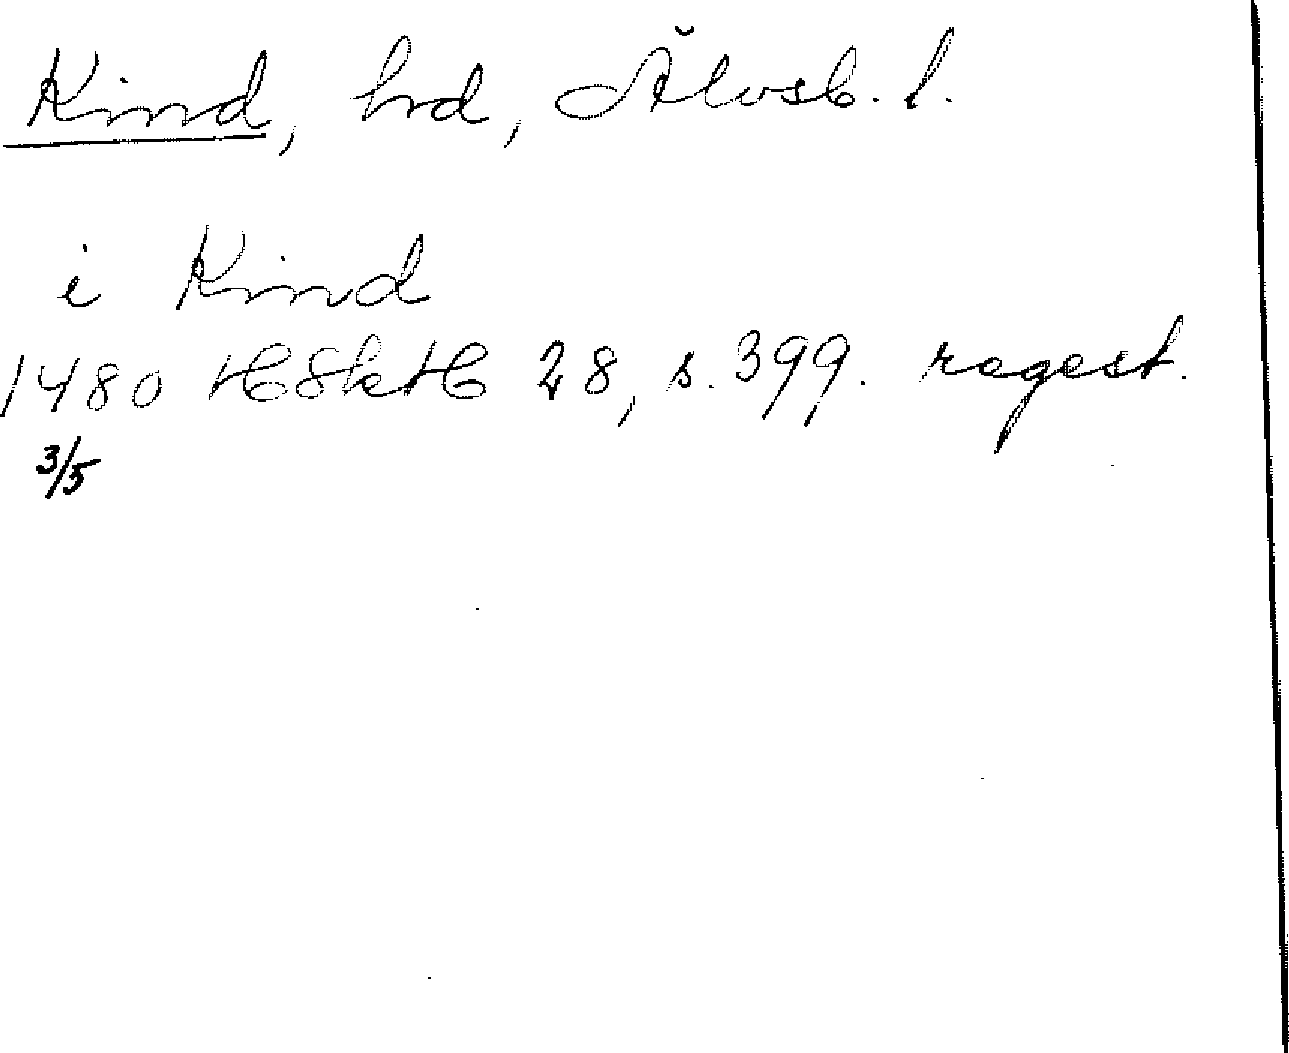 Kind, hrd, Älvsb. l.
i Kind
1480 HSkH 28, s. 399. regest.
3/5